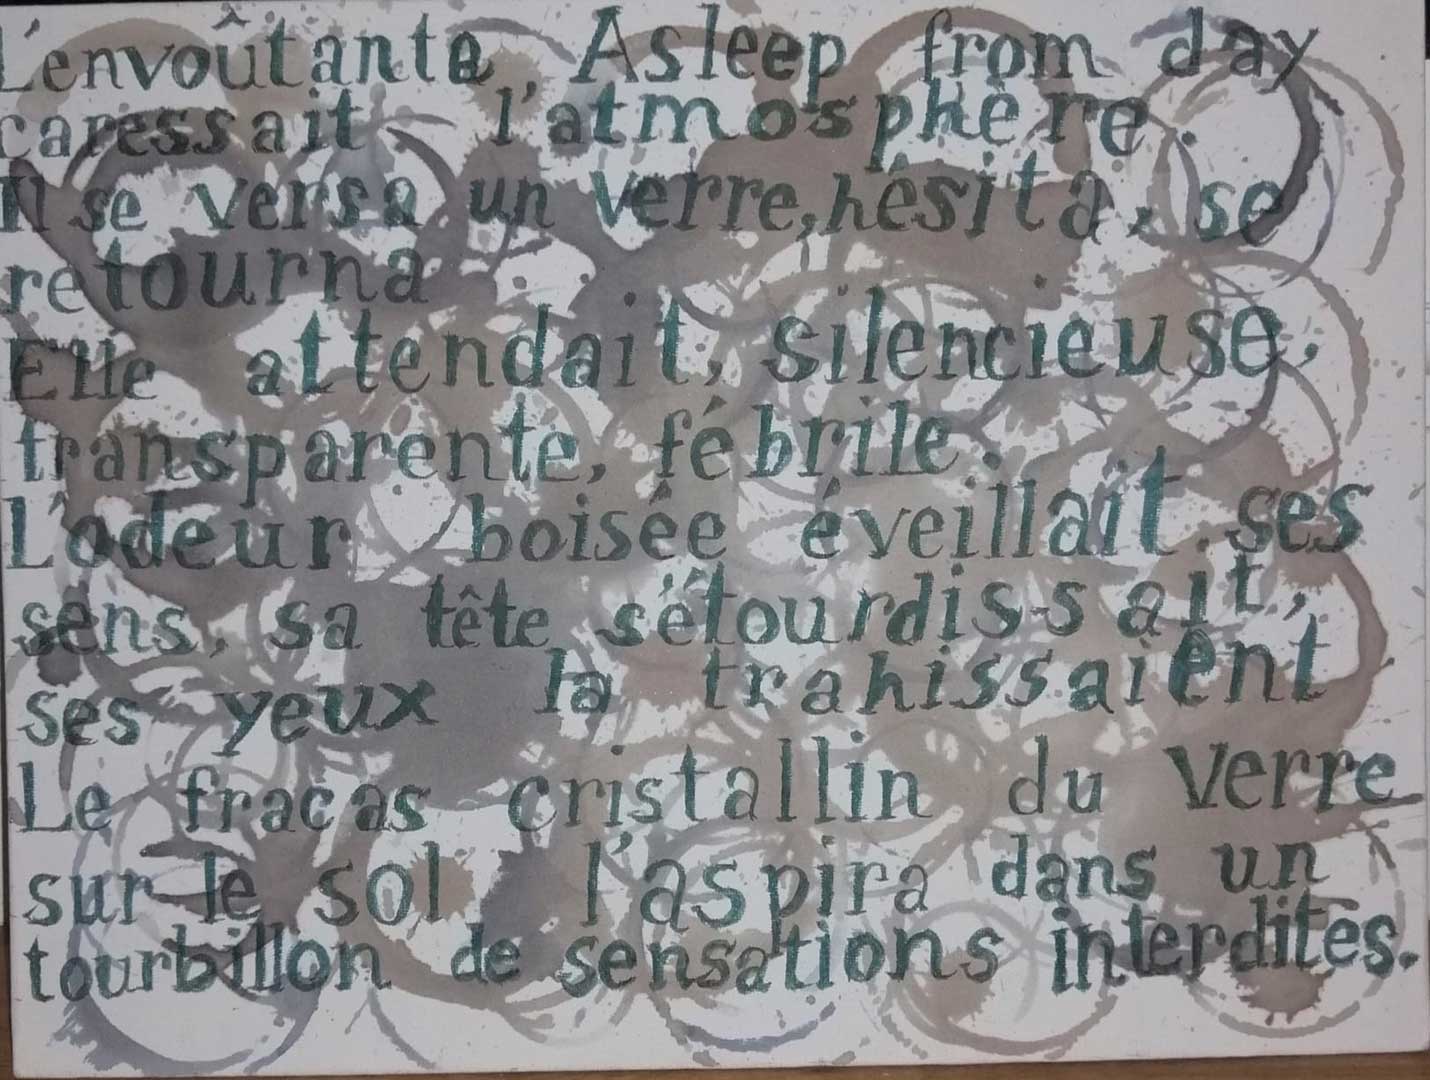 L'envoûtante Asleep from day
caressait l'atmosphère.
Il se versa un verre, hésita, se
retourna
Elle attendait, silencieuse,
transparente, fébrile.
L'odeur boisée éveillait ses
sens, sa tête s'étourdissait,
ses yeux la trahissaient
Le fracas cristallin du verre
sur le sol l'aspira dans un
tourbillon de sensations interdites.